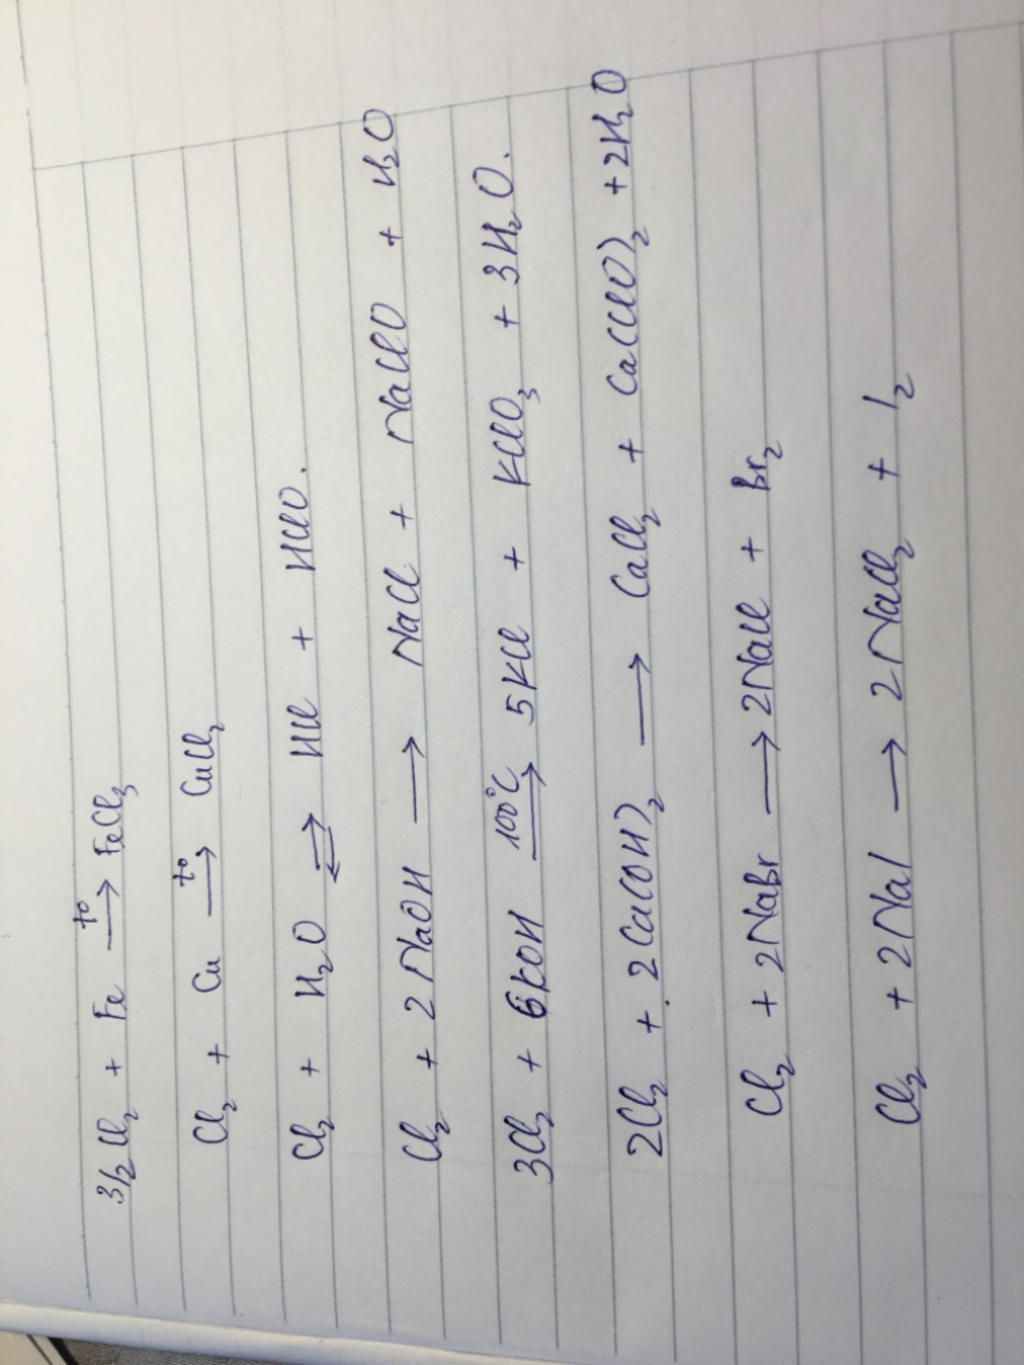 3/2 Cl₂ + Fe —t°→ FeCl₃
Cl₂ + Cu —t°→ CuCl₂
Cl₂ + H₂O ⇌ HCl + HClO.
Cl₂ + 2NaOH → NaCl + NaClO + H₂O
3Cl₂ + 6KOH —100°C→ 5KCl + KClO₃ + 3H₂O.
2Cl₂ + 2Ca(OH)₂ → CaCl₂ + Ca(ClO)₂ + 2H₂O
Cl₂ + 2NaBr → 2NaCl + Br₂
Cl₂ + 2NaI → 2NaCl₂ + I₂